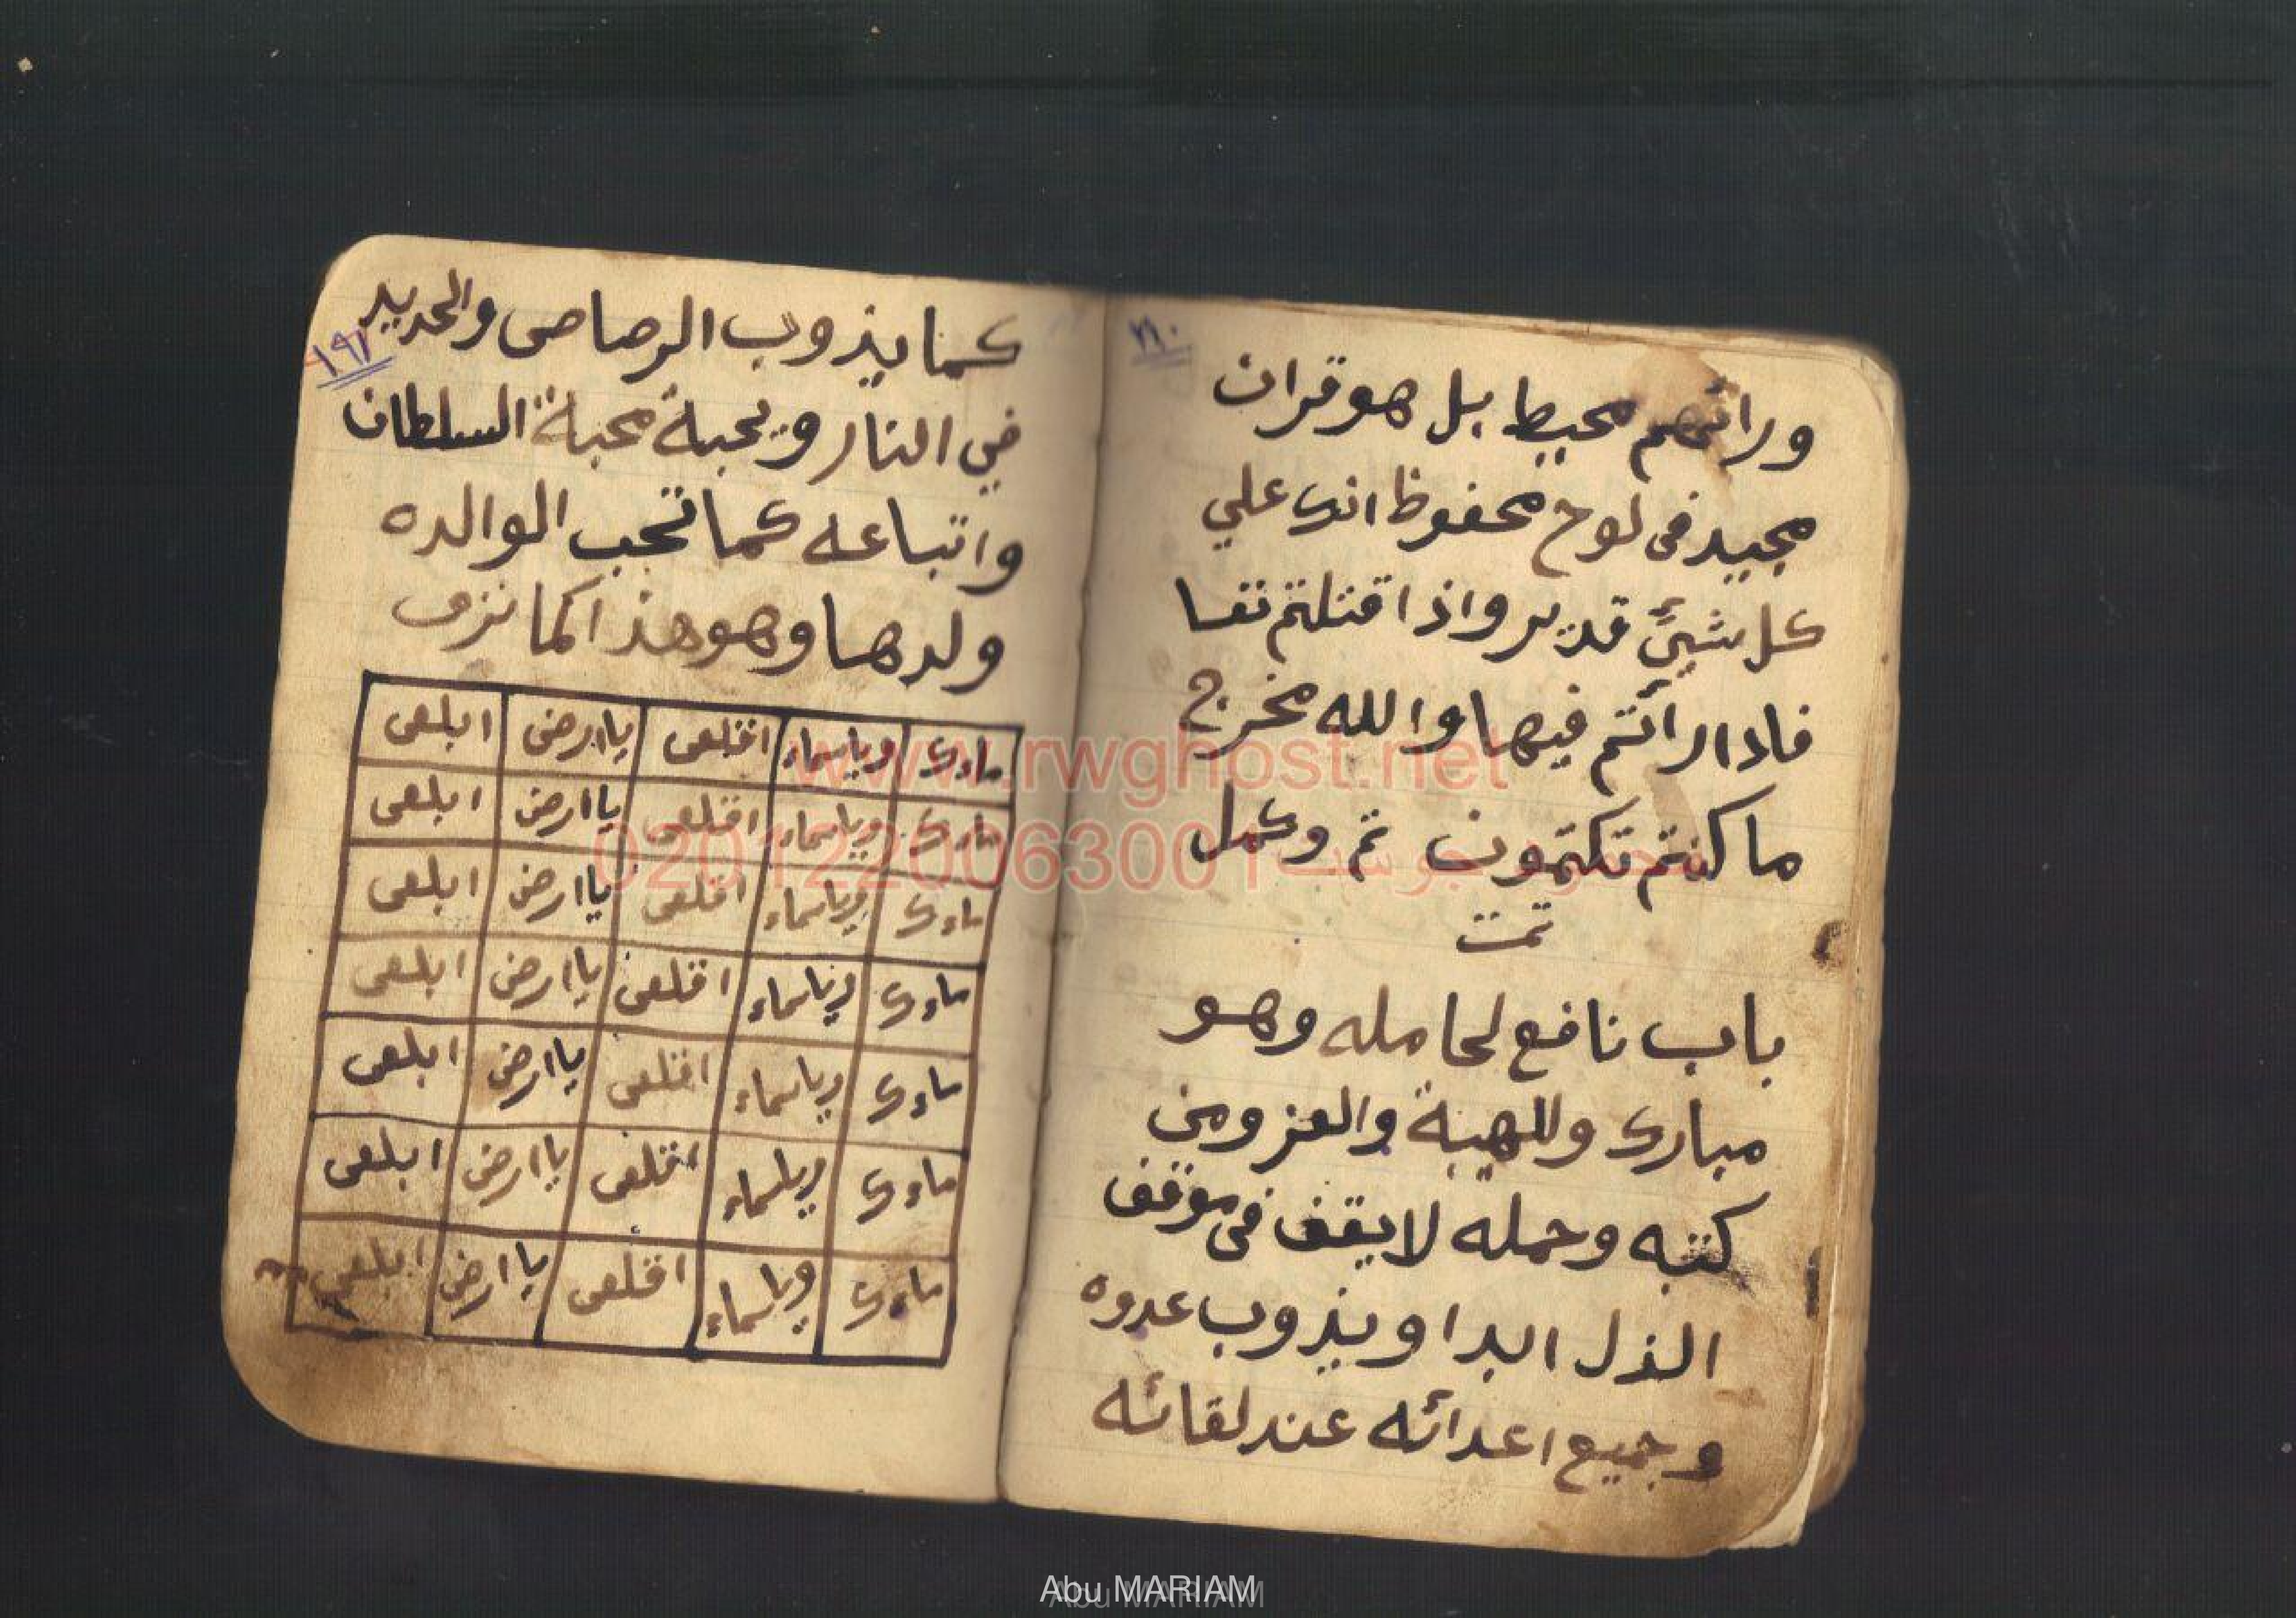 ١٩٠
ورائهم محيط بل هو قران
مجيد في لوح محفوظ انك علي
كل شيئ قدير واذا قتلتم نفسا
فادارأتم فيها والله مخرج
ما كنتم تكتمون تم وكمل
تمت
باب نافع لحامله وهو
مبارك وللهيبة والعز ومن
كتبه وحمله لا يقف في موقف
الذل ابدا ويذوب عدوه
وجميع اعدائه عند لقائه
١٩١
كما يذوب الرصاص والحديد
في النار ويحبه محبة السلطان
واتباعه كما تحب الوالده
ولدها وهو هذا كما نرى
ماءك وياسماء اقلعى ياارض ابلعى
ماءك وياسماء اقلعى ياارض ابلعى
ماءك وياسماء اقلعى ياارض ابلعى
ماءك وياسماء اقلعى ياارض ابلعى
ماءك وياسماء اقلعى ياارض ابلعى
ماءك وياسماء اقلعى ياارض ابلعى
ماءك وياسماء اقلعى ياارض ابلعى
www.rwghost.net
02012220063001
Abu MARIAM